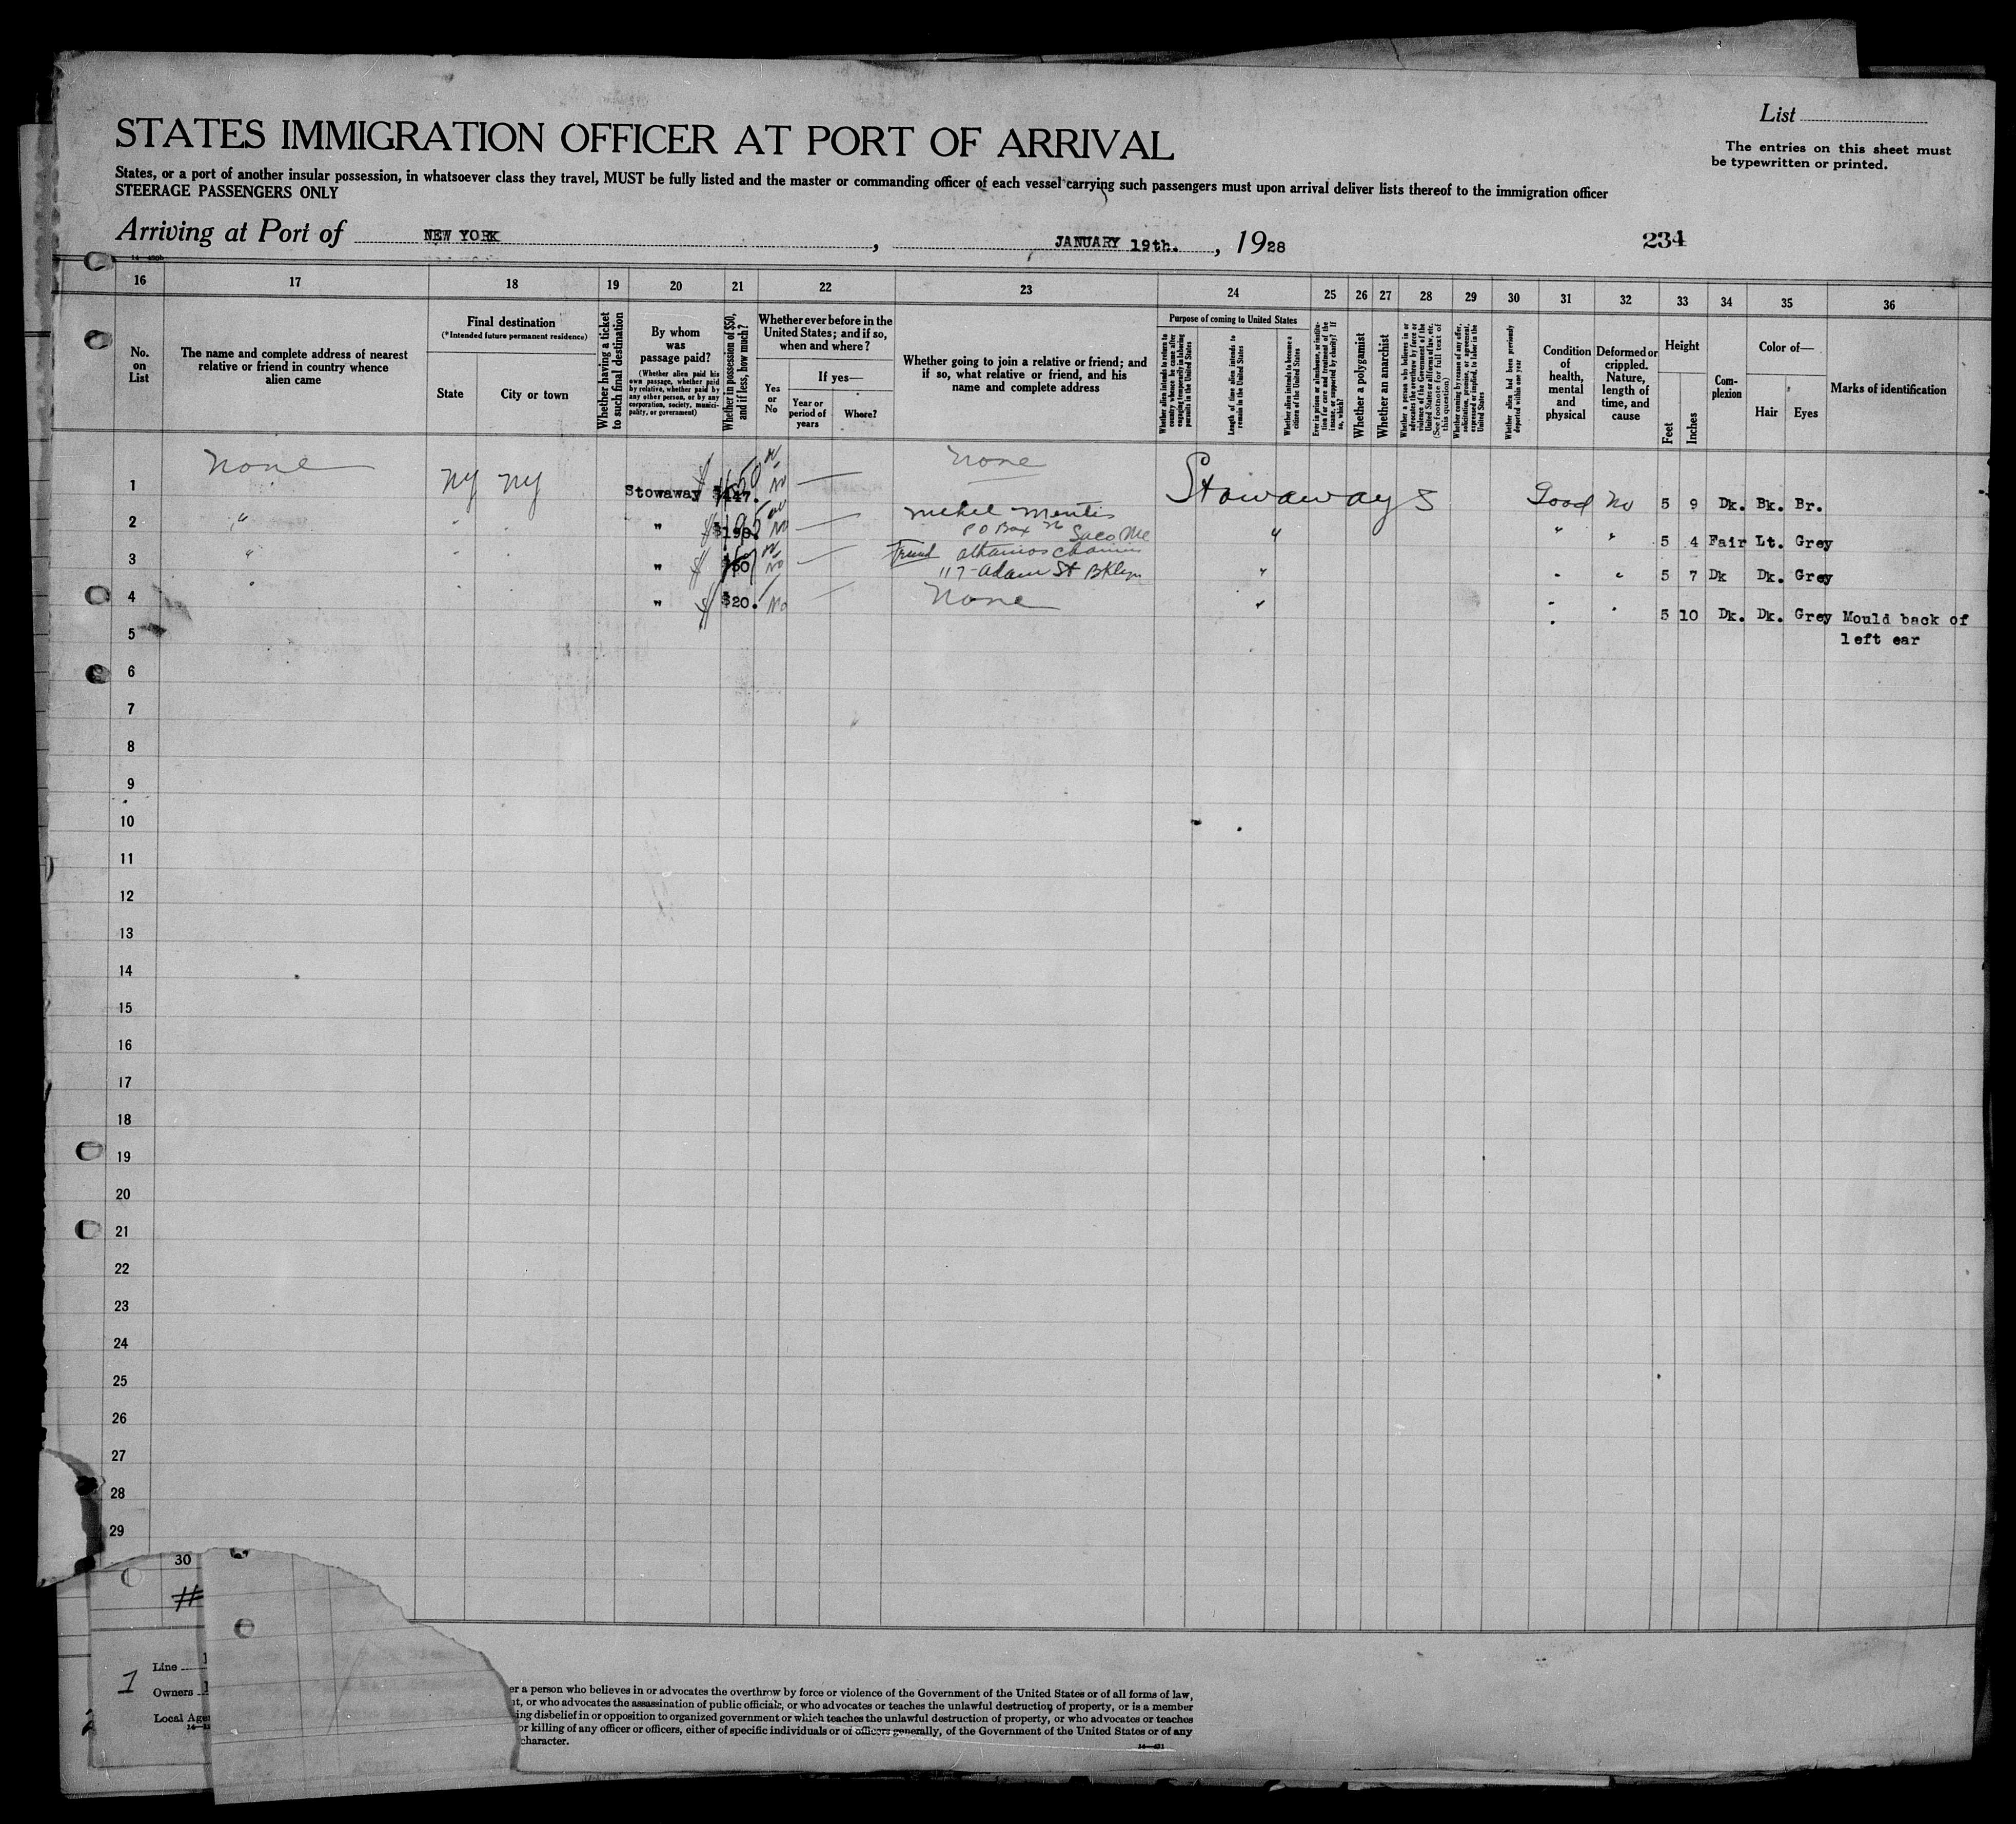 List
STATES IMMIGRATION OFFICER AT PORT OF ARRIVAL
The entries on this sheet must
be typewritten or printed.
States, or a port of another insular possession, in whatsoever class they travel, MUST be fully listed and the master or commanding officer of each vessel carrying such passengers must upon arrival deliver lists thereof to the immigration officer
STEERAGE PASSENGERS ONLY
Arriving at Port of NEW YORK, JANUARY 19th., 1928
234
16 17 18 19 20 21 22 23 24 25 26 27 28 29 30 31 32 33 34 35 36
No. on List
The name and complete address of nearest relative or friend in country whence alien came
Final destination
(*Intended future permanent residence)
State
City or town
Whether having a ticket to such final destination
By whom was passage paid?
(Whether alien paid his own passage, whether paid by relative, whether paid by any other person, or by any corporation, society, municipality, or government)
Whether in possession of $50, and if less, how much?
Whether ever before in the United States; and if so, when and where?
Yes or No
If yes—
Year or period of years
Where?
Whether going to join a relative or friend; and if so, what relative or friend, and his name and complete address
Purpose of coming to United States
Whether alien intends to return to country whence he came after engaging temporarily in laboring pursuits in the United States
Length of time alien intends to remain in the United States
Whether alien intends to become a citizen of the United States
Ever in prison or almshouse, or institution for care and treatment of the insane, or supported by charity? If so, which?
Whether a polygamist
Whether an anarchist
Whether a person who believes in or advocates the overthrow by force or violence of the Government of the United States or all forms of law, etc. (See footnote for full text of this question)
Whether coming by reason of any offer, solicitation, promise, or agreement, expressed or implied, to labor in the United States
Whether alien had been previously deported within one year
Condition of health, mental and physical
Deformed or crippled. Nature, length of time, and cause
Height
Feet
Inches
Complexion
Color of—
Hair
Eyes
Marks of identification
1 none NY NY Stowaway $147. $150 No — none Stowaways Good No 5 9 Dk. Bk. Br.
2 " " " " $190. $195 No — Mentis " " " 5 4 Fair Lt. Grey
PO Box 76 Saco Me
3 " " " " $ No — Friend
117 Adam St Bklyn " " " 5 7 Dk Dk. Grey
4 " " $20. No — none " " " 5 10 Dk. Dk. Grey Mould back of
left ear
5
6
7
8
9
10
11
12
13
14
15
16
17
18
19
20
21
22
23
24
25
26
27
28
29
30
#
1
Line
Owners
Local Age
er a person who believes in or advocates the overthrow by force or violence of the Government of the United States or of all forms of law,
nt, or who advocates the assassination of public officials, or who advocates or teaches the unlawful destruction of property, or is a member
ing disbelief in or opposition to organized government or which teaches the unlawful destruction of property, or who advocates or teaches
or killing of any officer or officers, either of specific individuals or of officers generally, of the Government of the United States or of any
character.